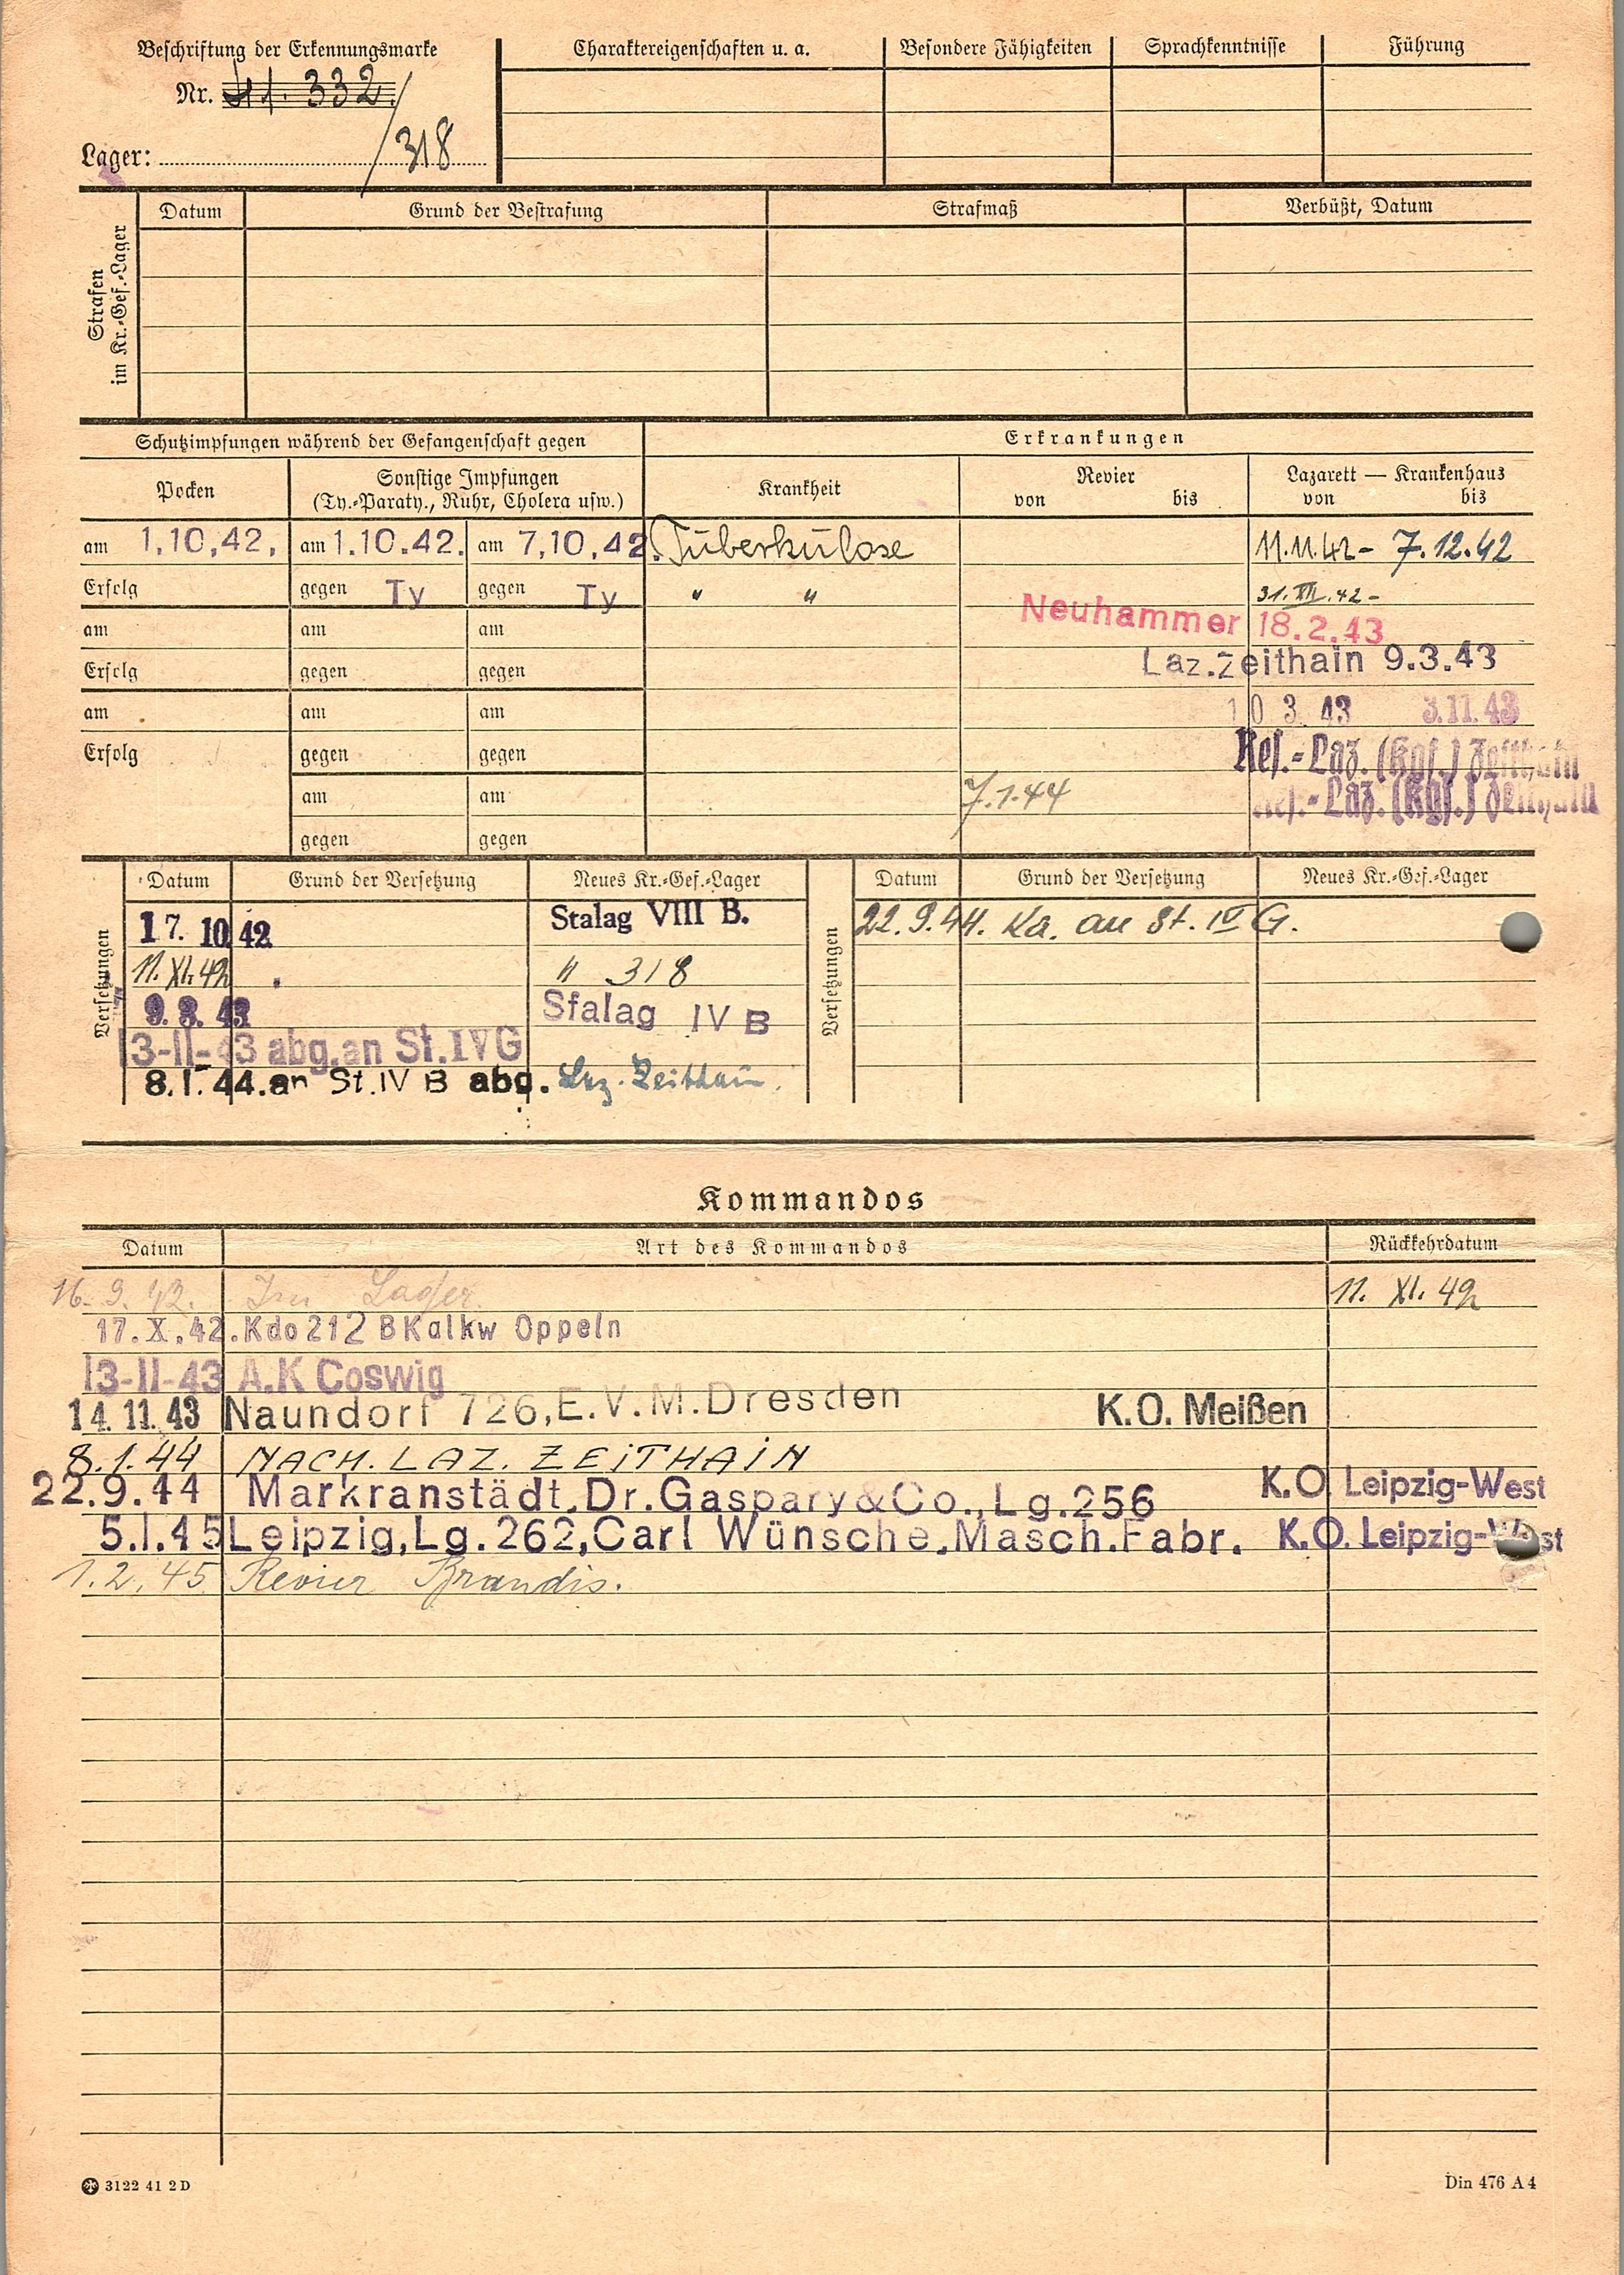 Beschriftung der Erkennungsmarke
Nr. 41.332/
Lager: 318
Charaktereigenschaften u. a. Besondere Fähigkeiten Sprachkenntnisse Führung
Strafen
im Kr.-Gef.-Lager
Datum Grund der Bestrafung Strafmaß Verbüßt, Datum
Schutzimpfungen während der Gefangenschaft gegen Erkrankungen
Pocken Sonstige Impfungen
(Ty.-Paraty., Ruhr, Cholera usw.)
Krankheit Revier Lazarett — Krankenhaus
von bis von bis
am 1.10.42. am 1.10.42. am 7.10.42. Tuberkulose 11.11.42 - 7.12.42
Erfolg gegen Ty gegen Ty " " 31.XII.42 -
am am am Neuhammer 18.2.43
Erfolg gegen gegen Laz.Zeithain 9.3.43
am am am 10 3. 43 3.11.43
Erfolg gegen gegen Res.-Laz. (Kgf.) Zeithain
am am 7.1.44 Res.-Laz. (Kgf.) Zeithain
gegen gegen
Versetzungen
Datum Grund der Versetzung Neues Kr.-Gef.-Lager
17. 10 42 Stalag VIII B.
11. XI. 42 " 318
9.3.43 Stalag IV B
13-11-43 abg.an St.IVG
8.1.44.an St.IV B abg. Laz. Zeithain.
Versetzungen
Datum Grund der Versetzung Neues Kr.-Gef.-Lager
22.9.44. Ka. an St. IV G.
Kommandos
Datum Art des Kommandos Rückkehrdatum
16. 9. 42. Im Lager 11. XI. 42
17.X.42. Kdo 212 B Kalkw Oppeln
13-11-43 A.K Coswig
14.11.43 Naundorf 726,E.V.M.Dresden K.O. Meißen
8.1.44 NACH. LAZ. ZEITHAIN
22.9.44 Markranstädt,Dr.Gaspary&Co.,Lg.256 K.O. Leipzig-West
5.1.45 Leipzig,Lg.262,Carl Wünsche,Masch.Fabr. K.O. Leipzig-West
1.2.45 Revier Brandis.
3122 41 2 D Din 476 A 4